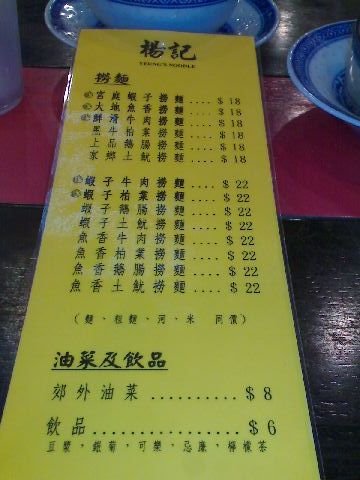 楊記
YEUNG'S NOODLE
撈麵
宮庭蝦子撈麵 .... $ 18
大地魚香撈麵 .... $ 18
鮮滑牛肉撈麵 .... $ 18
黑牛柏葉撈麵 .... $ 18
上品鵝腸撈麵 .... $ 18
家鄉土魷撈麵 .... $ 18
蝦子牛肉撈麵 .... $ 22
蝦子柏葉撈麵 .... $ 22
蝦子鵝腸撈麵 .... $ 22
蝦子土魷撈麵 .... $ 22
魚香牛肉撈麵 .... $ 22
魚香柏葉撈麵 .... $ 22
魚香鵝腸撈麵 .... $ 22
魚香土魷撈麵 .... $ 22
（麵、粗麵、河、米 同價）
油菜及飲品
郊外油菜 .......... $ 8
飲品 ............... $ 6
豆漿、銀菊、可樂、忌廉、檸檬茶